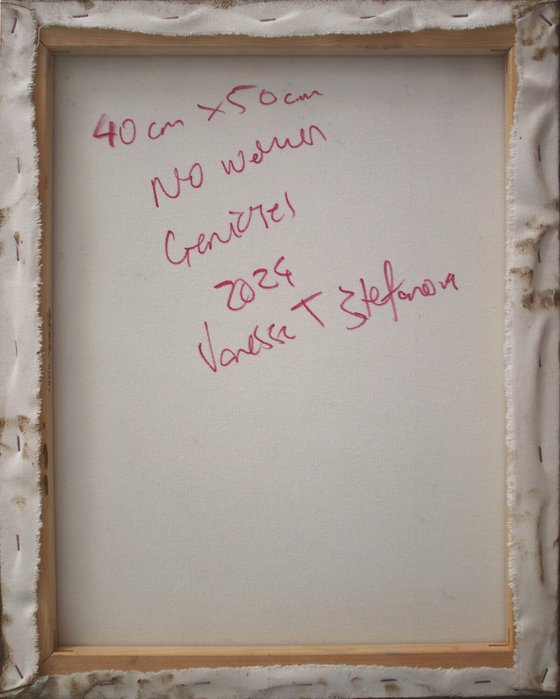 40 cm x 50 cm
No women
Geniuses
2024
Vanessa T Stefanova